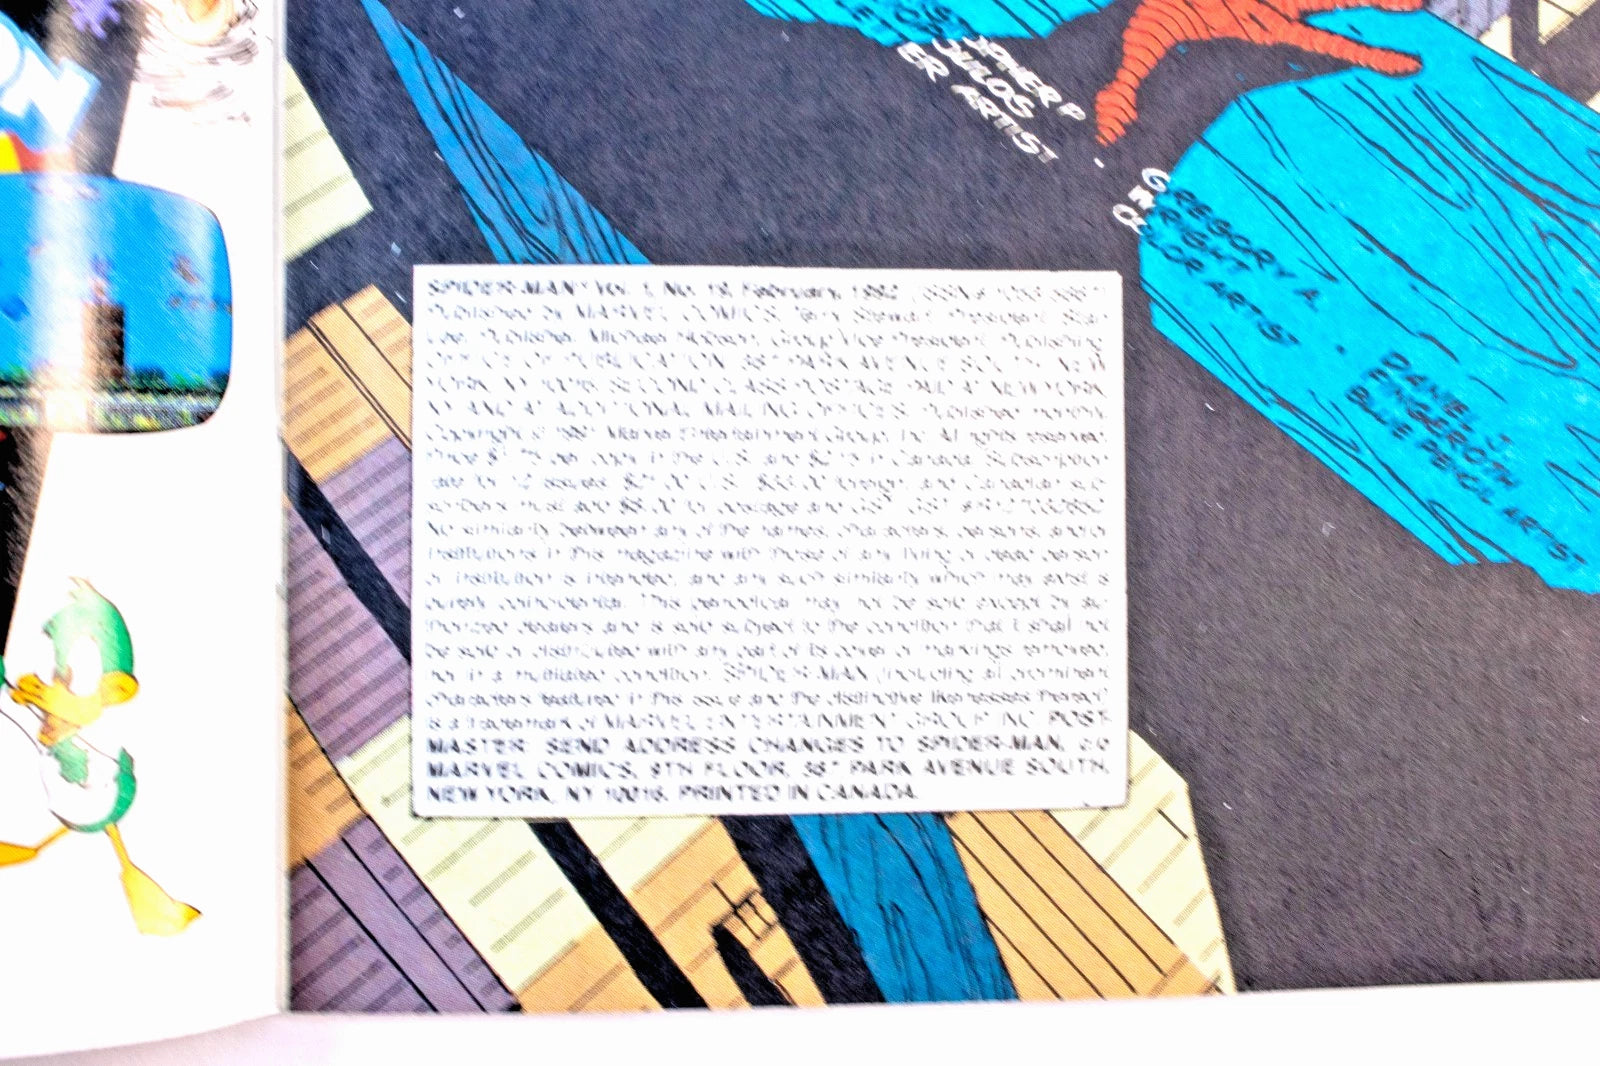 ER
ARTIST
GREGORY
WRIGHT
COLOR ARTIST
DANIEL J.
FINGEROTH
BLUE PENCIL ARTIST
SPIDER-MAN Vol. 1, No. 19, February, 1992
Published by MARVEL COMICS, Terry Stewart, President. Stan
Lee, Publisher. Michael Hobson, Group Vice President, Publishing.
OFFICE OF PUBLICATION: 387 PARK AVENUE SOUTH, NEW
YORK, NY 10016. SECOND CLASS POSTAGE PAID AT NEW YORK,
NY AND AT ADDITIONAL MAILING OFFICES. Published monthly.
Copyright © 1991 Marvel Entertainment Group, Inc. All rights reserved.
Price $1.75 per copy in the U.S. and in Canada. Subscription
rate for 12 issues: $21.00 U.S. foreign, and Canadian sub-
scribers must add for postage and GST. GST
No similarity between any of the names, characters, persons, and/or
institutions in this magazine with those of any living or dead person
or institution is intended, and any such similarity which may exist is
purely coincidental. This periodical may not be sold except by au-
thorized dealers and is sold subject to the condition that it shall not
be sold or distributed with any part of its cover or markings removed,
nor in a mutilated condition. SPIDER-MAN (including all prominent
characters featured in this issue and the distinctive likenesses thereof)
is a trademark of MARVEL ENTERTAINMENT GROUP, INC. POST-
MASTER: SEND ADDRESS CHANGES TO SPIDER-MAN, c/o
MARVEL COMICS, 9TH FLOOR, 387 PARK AVENUE SOUTH,
NEW YORK, NY 10016. PRINTED IN CANADA.